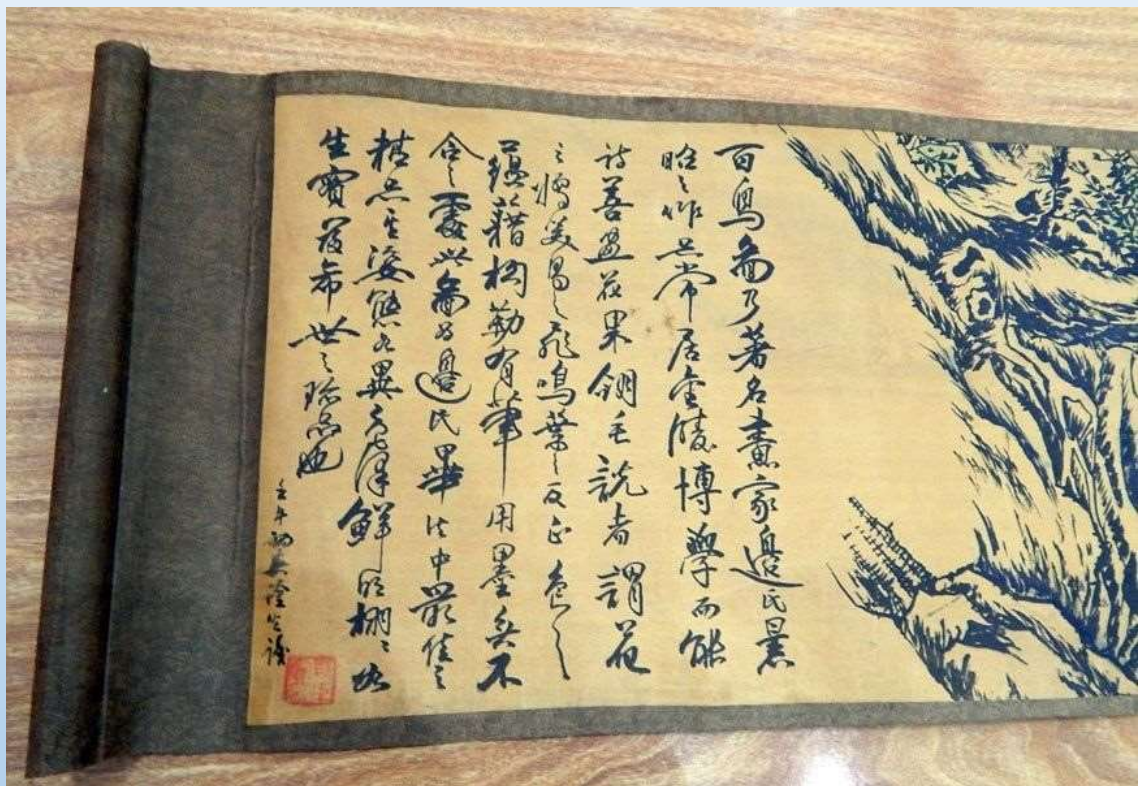 百鳥啚乃著名畫家邊氏景
昭之作其常居金陵博學而能
詩善畫花果翎毛説者謂花
之嬌美鳥之飛鳴葉之反正色之
蘊藉构勒有筆用墨無不
合之處此啚為邊氏法中最佳之
精品其姿態各異毛澤鮮明栩栩如
生實屬希世之珍品也
壬午初